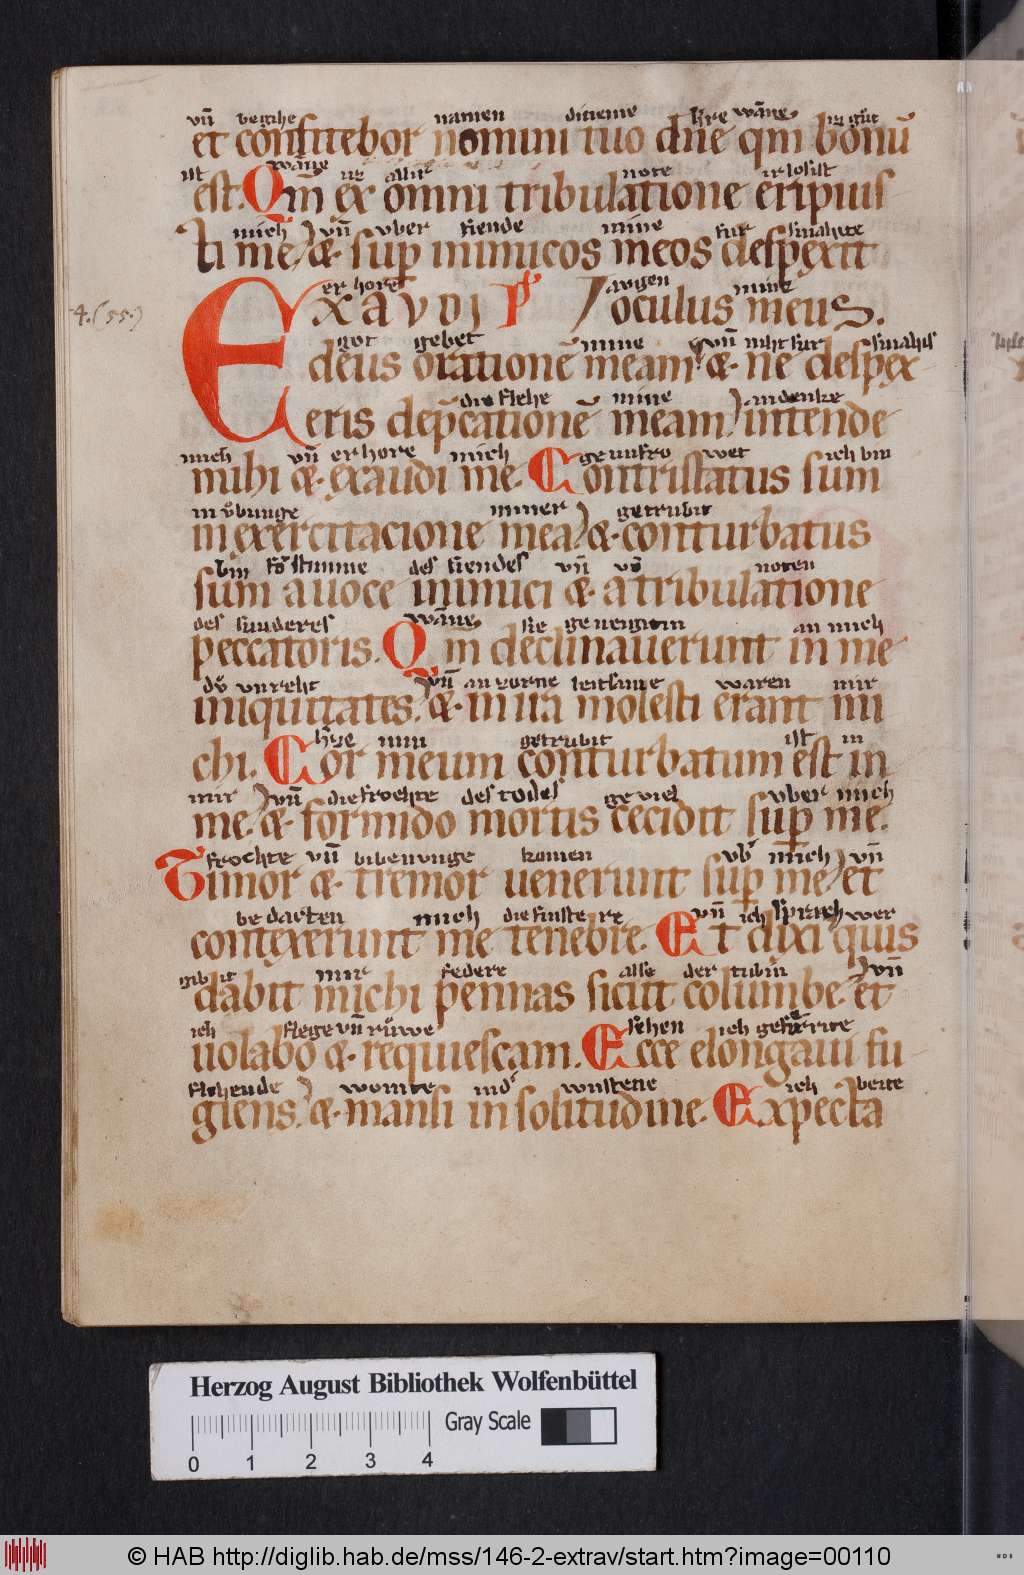 vn̄ vergihe namen dineme h're wāne iz gůt
et confitebor nomini tuo dn̄e qm̄ bonū
ist wāne uz allir note irlosist
est. Qm̄ ex omni tribulatione eripuis
mich vn̄ vber fiende mine fur smahite
ti me et sup̄ inimicos meos despexit
er hore augen mine
EXAVDI ps oculus meus.
4. (55.)
got gebet mine vn̄ niht fur smahis
deus orationē meam et ne despex
die flehe mine an denke
eris dep̄cationē meam intende
mich vn̄ er hore mich ge unfro wet ich bin
mihi et exaudi me. Contristatus sum
in ůbunge miner getrubit
in exercitacione mea et conturbatus
bin fō stimme des fiendes vn̄ vō noten
sum a uoce inimici et a tribulatione
des sunderes wāne sie geneigten an mich
peccatoris. Qm̄ declinauerunt in me
dů vnreht vn̄ an zorne leitsame waren mir
iniquitates. et in ira molesti erant mi
h'ze min getrubit ist in
chi. Cor meum conturbatum est in
mir vn̄ die frochte des todes geviel vber mich
me. et formido mortis cecidit sup̄ me.
frochte vn̄ bibenunge komen vb' mich vn̄
Timor et tremor uenerunt sup̄ me et
be dacten mich die finstere vn̄ ich sprach wer
contexerunt me tenebre. Et dixi quis
gibit mir federe alse der tubin vn̄
dabit michi pennas sicut columbe et
ich flege vn̄ růwe sehen ich geferrite
uolabo et requiescam. Ecce elongaui fu
flihende wonite in d' wustene ich beite
giens. et mansi in solitudine. Expecta
Herzog August Bibliothek Wolfenbüttel
Gray Scale
0 1 2 3 4
© HAB http://diglib.hab.de/mss/146-2-extrav/start.htm?image=00110